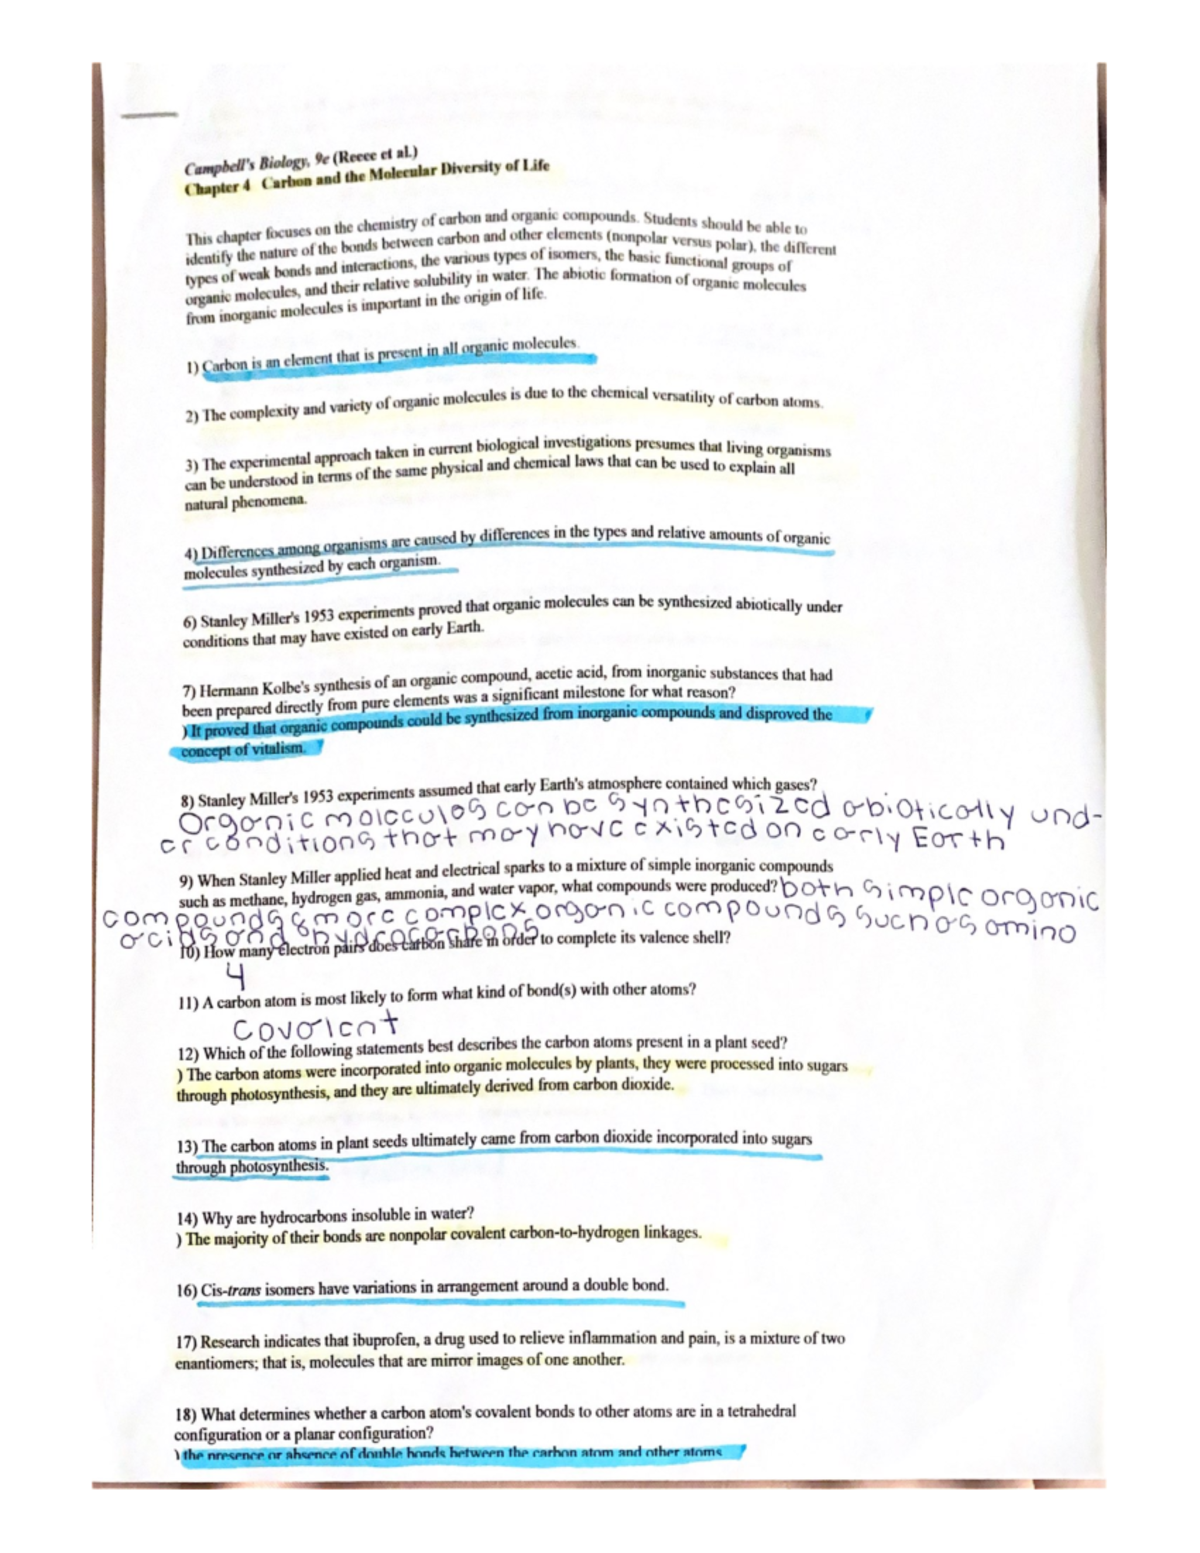 Campbell's Biology, 9e (Reece et al.)
Chapter 4 Carbon and the Molecular Diversity of Life
This chapter focuses on the chemistry of carbon and organic compounds. Students should be able to
identify the nature of the bonds between carbon and other elements (nonpolar versus polar), the different
types of weak bonds and interactions, the various types of isomers, the basic functional groups of
organic molecules, and their relative solubility in water. The abiotic formation of organic molecules
from inorganic molecules is important in the origin of life.
1) Carbon is an element that is present in all organic molecules.
2) The complexity and variety of organic molecules is due to the chemical versatility of carbon atoms.
3) The experimental approach taken in current biological investigations presumes that living organisms
can be understood in terms of the same physical and chemical laws that can be used to explain all
natural phenomena.
4) Differences among organisms are caused by differences in the types and relative amounts of organic
molecules synthesized by each organism.
6) Stanley Miller's 1953 experiments proved that organic molecules can be synthesized abiotically under
conditions that may have existed on early Earth.
7) Hermann Kolbe's synthesis of an organic compound, acetic acid, from inorganic substances that had
been prepared directly from pure elements was a significant milestone for what reason?
) It proved that organic compounds could be synthesized from inorganic compounds and disproved the
concept of vitalism.
8) Stanley Miller's 1953 experiments assumed that early Earth's atmosphere contained which gases?
Organic molecules can be synthesized abiotically und-
er conditions that may have existed on early Earth
9) When Stanley Miller applied heat and electrical sparks to a mixture of simple inorganic compounds
such as methane, hydrogen gas, ammonia, and water vapor, what compounds were produced? both simple organic
compounds & more complex organic compounds such as amino
acids and hydrocarbons
10) How many electron pairs does carbon share in order to complete its valence shell?
4
11) A carbon atom is most likely to form what kind of bond(s) with other atoms?
Covalent
12) Which of the following statements best describes the carbon atoms present in a plant seed?
) The carbon atoms were incorporated into organic molecules by plants, they were processed into sugars
through photosynthesis, and they are ultimately derived from carbon dioxide.
13) The carbon atoms in plant seeds ultimately came from carbon dioxide incorporated into sugars
through photosynthesis.
14) Why are hydrocarbons insoluble in water?
) The majority of their bonds are nonpolar covalent carbon-to-hydrogen linkages.
16) Cis-trans isomers have variations in arrangement around a double bond.
17) Research indicates that ibuprofen, a drug used to relieve inflammation and pain, is a mixture of two
enantiomers; that is, molecules that are mirror images of one another.
18) What determines whether a carbon atom's covalent bonds to other atoms are in a tetrahedral
configuration or a planar configuration?
) the presence or absence of double bonds between the carbon atom and other atoms